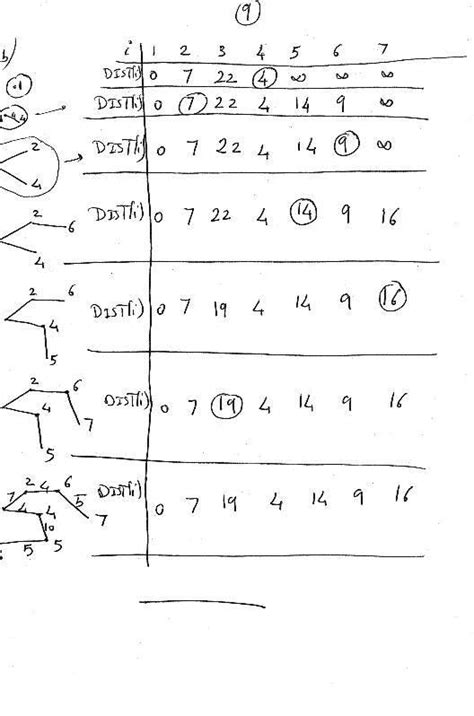 9
b)
i 1 2 3 4 5 6 7
DIST(i) 0 7 22 4 ∞ ∞ ∞
.1
DIST(i) 0 7 22 4 14 9 ∞
DIST(i) 0 7 22 4 14 9 ∞
2
4
DIST(i) 0 7 22 4 14 9 16
2 6
4
DIST(i) 0 7 19 4 14 9 16
2 6
4
5
DIST(i) 0 7 19 4 14 9 16
2 6
4
7
5
DIST(i) 0 7 19 4 14 9 16
7 2 4 6
4 4 5
7
10
5 5